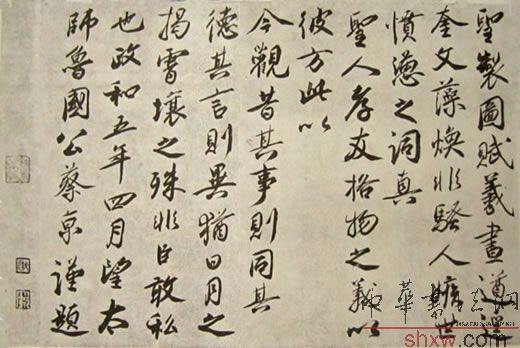 聖製圖賦羲畫遵
奎文藻煥非騷人曠世
憤懣之詞真
聖人孝友格物之義以
彼方此以
今觀昔其事則同其
德其言則異猶日月之
揭霄壤之殊非臣敢私
也政和五年四月望太
師魯國公蔡京謹題
shxw.com